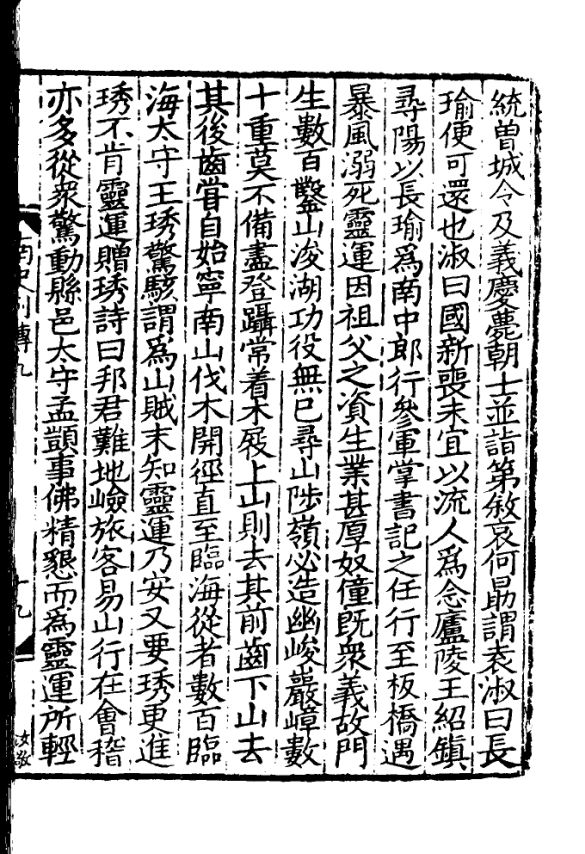 統曽城令及義慶薨朝士並詣第敘哀何勗謂袁淑曰長
瑜便可還也淑曰國新喪未宜以流人爲念廬陵王紹鎮
尋陽以長瑜爲南中郎行參軍掌書記之任行至板橋遇
暴風溺死靈運因祖父之資生業甚厚奴僮既衆義故門
生數百鑿山浚湖功役無已尋山陟嶺必造幽峻巖嶂數
十重莫不備盡登躡常着木屐上山則去其前齒下山去
其後齒甞自始寧南山伐木開徑直至臨海從者數百臨
海太守王琇驚駭謂爲山賊末知靈運乃安又要琇更進
琇不肯靈運贈琇詩曰邦君難地嶮旅客易山行在會稽
亦多從衆驚動縣邑太守孟顗事佛精懇而爲靈運所輕
南史列傳九
十九